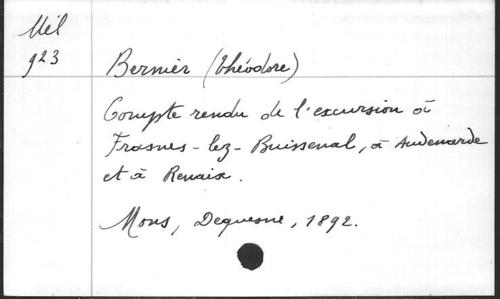 Mél
923
Bernier (Théodore)
Compte rendu de l'excursion à
Frasnes-lez-Buissenal, à Audenarde
et à Renaix.
Mons, Dequesne, 1892.